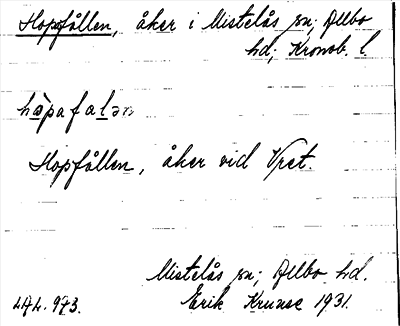 Hopfållen, åker i Mistelås sn; Allbo
hd; Kronob. l.
hòpafalən
Hopfållen, åker vid Vret.
Mistelås sn; Allbo hd.
Erik Kruuse 1931.